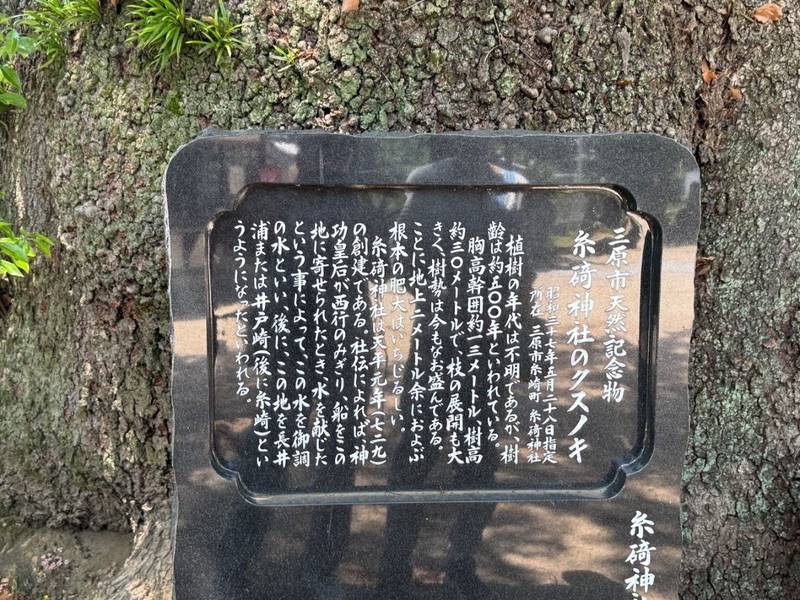 三原市天然記念物
糸碕神社のクスノキ
昭和三十七年五月二十八日指定
所在 三原市糸崎町 糸碕神社
植樹の年代は不明であるが、樹
齢は約五〇〇年といわれている。
胸高幹囲約一三メートル、樹高
約三〇メートルで、枝の展開も大
きく、樹勢は今もなお盛んである。
ことに地上二メートル余におよぶ
根本の肥大はいちじるしい。
糸碕神社は天平元年(七二九)
の創建である。社伝によれば、神
功皇后が西行のみぎり、船をこの
地に寄せられたとき、水を献じた
という事によって、この水を御調
の水といい、後に、この地を長井
浦または井戸崎(後に糸崎)とい
うようになったといわれる。
糸碕神